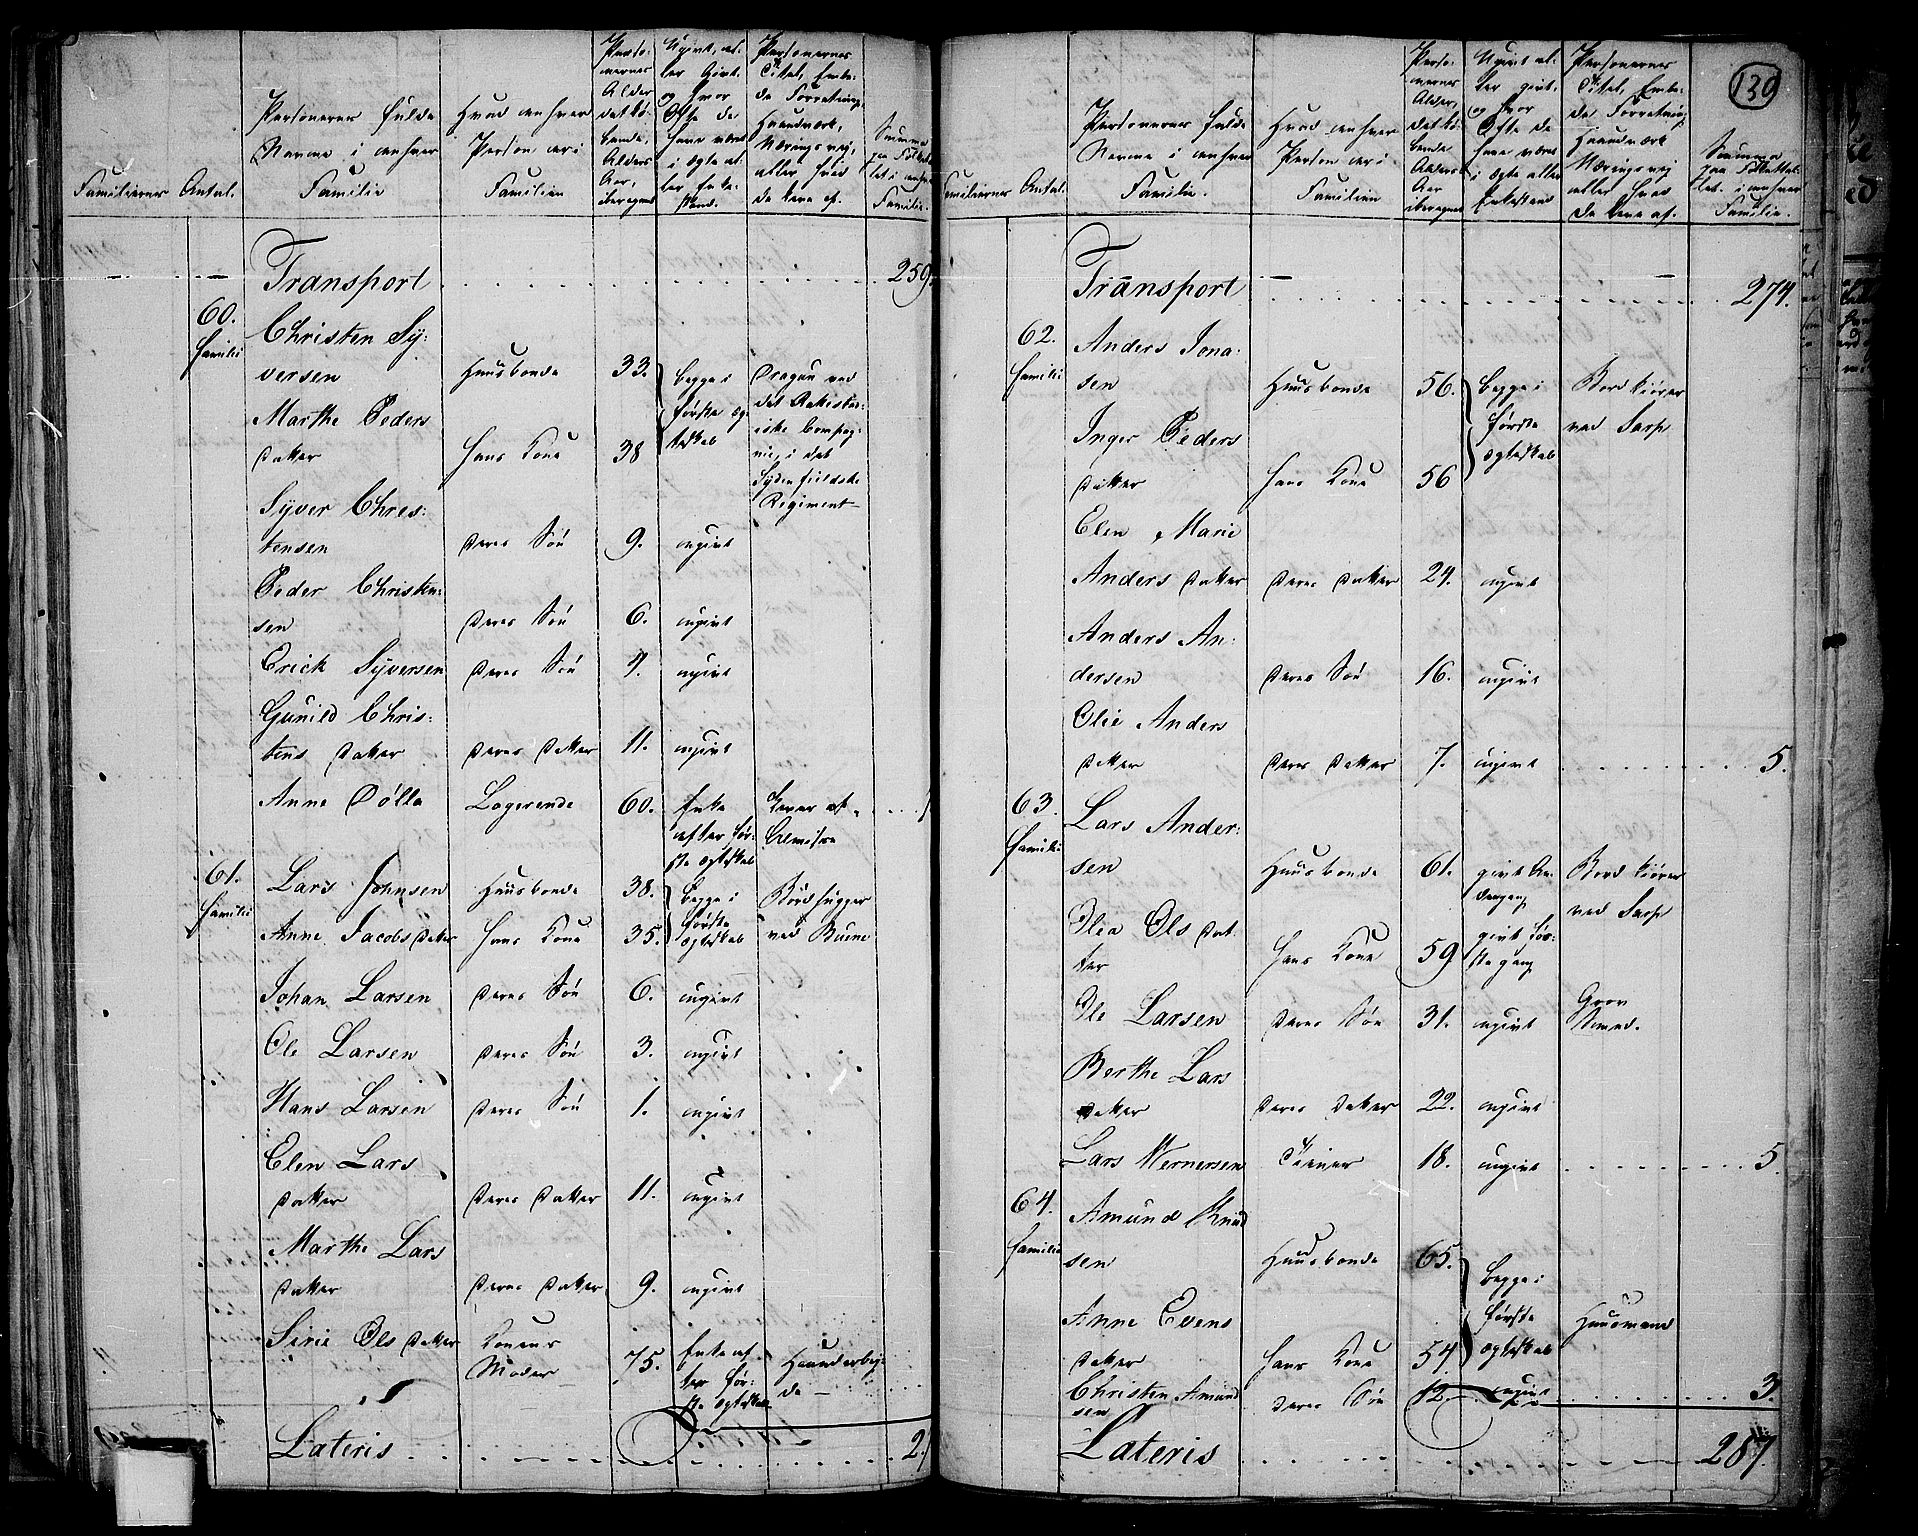 Familiernes Antal.
Personernes fulde
Navne i enhver
Familie
Hvad enhver
Person er i
Familien
Perso-
nernes
Alder
det lö-
bende
Alders
Aar,
iberegnet
Ugivt, el-
ler Givt,
og hvor
Ofte de
have været
i Ægte el-
ler Enke-
stand.
Personernes
Titel, Embe-
de Forretning,
Haandværk,
Næringsvej,
eller hvad
de leve af.
Summa
paa Folketal-
let i enhver
Familie.
Transport 259.
60.
Familie
Christen Sy-
versen Huusbonde 33. begge i
förste Æg-
teskab
Dragon ved
det Rakkestad-
ske Compag-
nie, i det
Syndenfieldske
Regiment
Marthe Peders
Datter Hans Kone 38
Syver Chris-
tensen Deres Sön 9. ugivt
Peder Christen-
sen Deres Sön 6. ugivt
Erick Syversen Deres Sön 4. ugivt
Gunild Chris-
tens Datter Deres Datter 11. ugivt
Anne Pölle Logerende 60. Enke
efter för-
ste Ægteskab
Lever af
Almisse
61.
Familie
Lars Johnsen Huusbonde 38. begge i
förste
Ægteskab
Bordhugger
ved Buene
Anne Jacobs Datter Hans Kone 35.
Johan Larsen Deres Sön 6. ugivt
Ole Larsen Deres Sön 3. ugivt
Hans Larsen Deres Sön 1. ugivt
Elen Lars
Datter Deres Datter 11. ugivt
Marthe Lars
Datter Deres Datter 9. ugivt
Sirie Ols Datter Konens
Moder 75. Enke ef-
ter för-
ste Ægteskab
Haandarbej-
de
Lateris 2
130
Familiernes Antal.
Personernes fulde
Navne i enhver
Familie.
Hvad enhver
Person er i
Familien
Perso-
nernes
Alder,
det lö-
bende
Alders
Aar
iberegnet
Ugivt el-
ler givt,
og hvor
Ofte de
have været
i Ægte eller
Enkestand
Personernes
Titel, Embe-
de Forretning
Haandværk
Næringsvej
eller hvad
de leve af.
Summa
paa Folketal-
let i enhver
Familie.
Transport 274.
62.
Familie
Anders Jona-
sen Huusbonde 56. begge i
förste
Ægteskab
Bord kiörer
ved Sarp
Inger Peders
Datter Hans Kone 56
Elen Marie
Anders Datter Deres Datter 24. ugivt
Anders An-
dersen Deres Sön 16. ugivt
Olie Anders
Datter Deres Datter 7. ugivt 5.
63.
Familie
Lars Ander-
sen Huusbonde 61. givt An-
dengang
Bord kiörer
ved Sarp
Olia Ols Dat-
ter Hans Kone 59 givt för-
ste gang
Ole Larsen Deres Sön 31. ugivt Grov
Smed.
Berthe Lars
Datter Deres Datter 22. ugivt
Lars Wernersen Tiener 18. ugivt 5.
64.
Familie
Amund Knud
sen Huusbonde 65. begge i
förste
Ægteskab
Huusmand
Anne Evens
Datter Hans Kone 54
Christen Amund
sen Deres Sön 12 ugivt 3.
Lateris 287